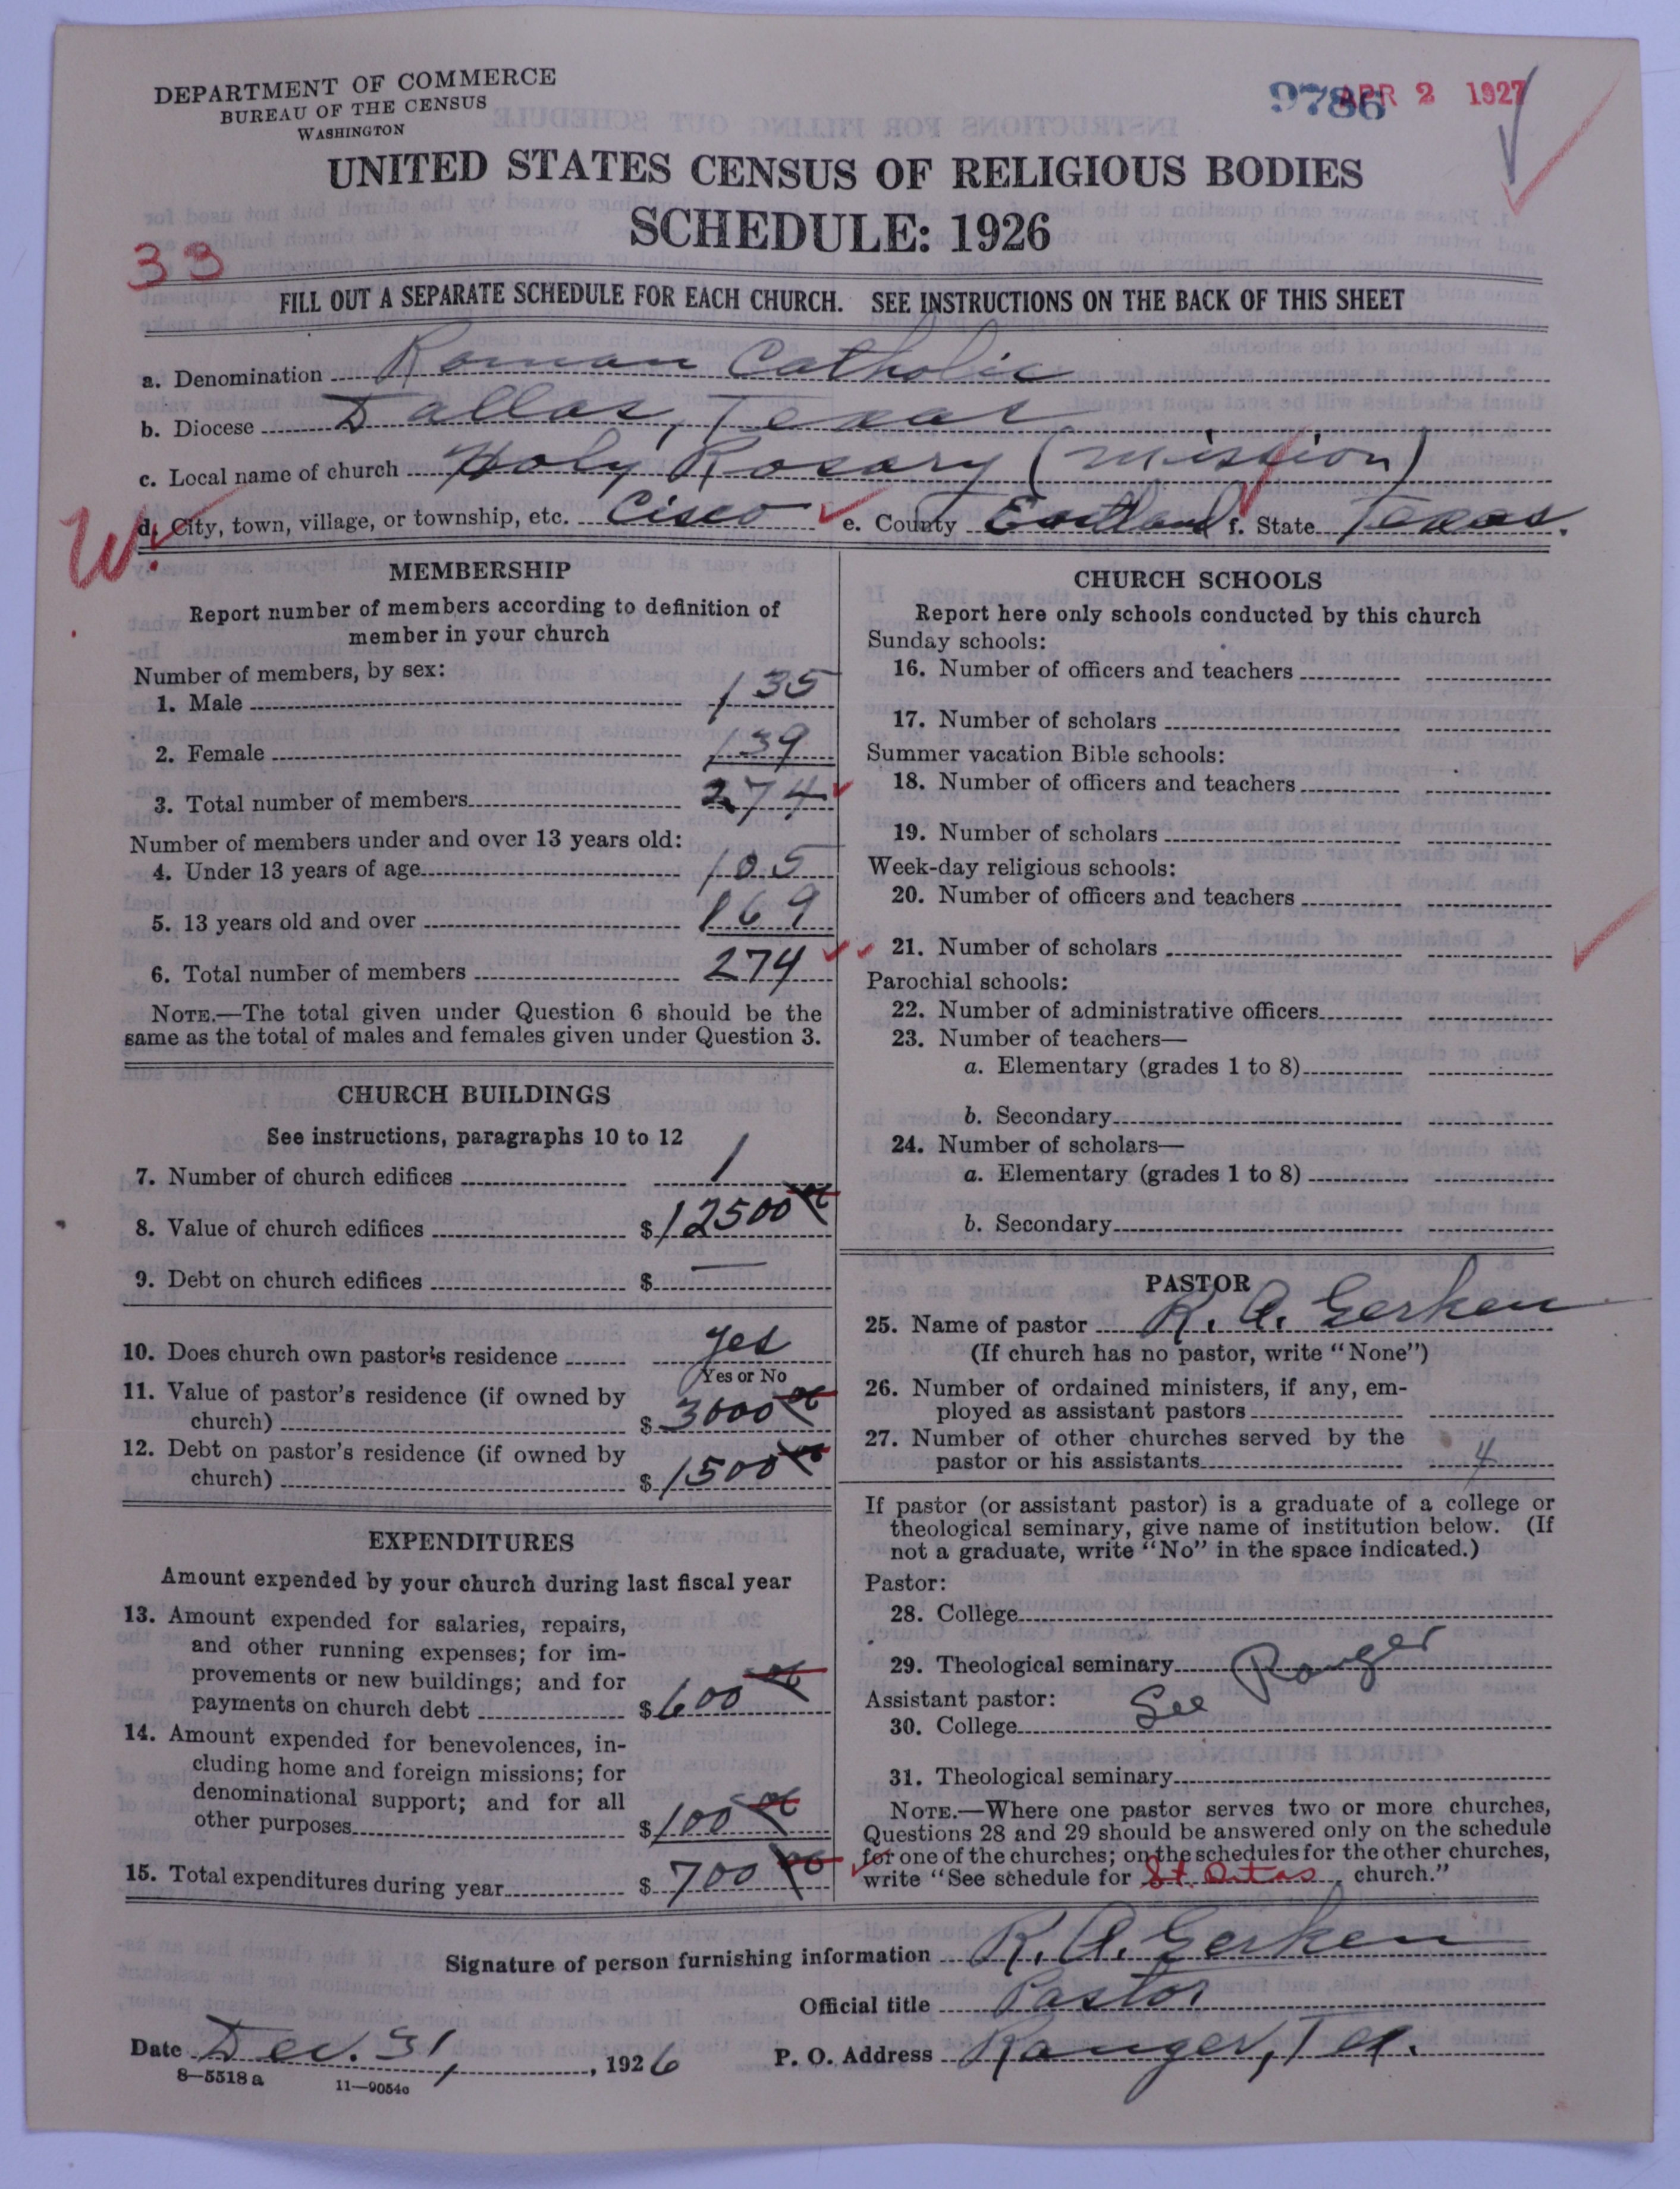 DEPARTMENT OF COMMERCE
BUREAU OF THE CENSUS
WASHINGTON
9786 APR 2 1927
UNITED STATES CENSUS OF RELIGIOUS BODIES
SCHEDULE: 1926
33
FILL OUT A SEPARATE SCHEDULE FOR EACH CHURCH. SEE INSTRUCTIONS ON THE BACK OF THIS SHEET
a. Denomination Roman Catholic
b. Diocese Dallas, Texas
c. Local name of church Holy Rosary (mission)
W.
d. City, town, village, or township, etc. Cisco e. County Eastland f. State Texas.
MEMBERSHIP
Report number of members according to definition of
member in your church
Number of members, by sex:
1. Male 135
2. Female 139
3. Total number of members 274
Number of members under and over 13 years old:
4. Under 13 years of age 105
5. 13 years old and over 169
6. Total number of members 274
NOTE.—The total given under Question 6 should be the
same as the total of males and females given under Question 3.
CHURCH BUILDINGS
See instructions, paragraphs 10 to 12
7. Number of church edifices 1
8. Value of church edifices $12500
9. Debt on church edifices $ —
10. Does church own pastor's residence yes
Yes or No
11. Value of pastor's residence (if owned by
church) $3000
12. Debt on pastor's residence (if owned by
church) $1500
EXPENDITURES
Amount expended by your church during last fiscal year
13. Amount expended for salaries, repairs,
and other running expenses; for im-
provements or new buildings; and for
payments on church debt $600
14. Amount expended for benevolences, in-
cluding home and foreign missions; for
denominational support; and for all
other purposes $100
15. Total expenditures during year $700
CHURCH SCHOOLS
Report here only schools conducted by this church
Sunday schools:
16. Number of officers and teachers
17. Number of scholars
Summer vacation Bible schools:
18. Number of officers and teachers
19. Number of scholars
Week-day religious schools:
20. Number of officers and teachers
21. Number of scholars
Parochial schools:
22. Number of administrative officers
23. Number of teachers—
a. Elementary (grades 1 to 8)
b. Secondary
24. Number of scholars—
a. Elementary (grades 1 to 8)
b. Secondary
PASTOR
25. Name of pastor R. A. Gerken
(If church has no pastor, write "None")
26. Number of ordained ministers, if any, em-
ployed as assistant pastors
27. Number of other churches served by the
pastor or his assistants 4
If pastor (or assistant pastor) is a graduate of a college or
theological seminary, give name of institution below. (If
not a graduate, write "No" in the space indicated.)
Pastor:
28. College
29. Theological seminary
See Ranger
Assistant pastor:
30. College
31. Theological seminary
NOTE.—Where one pastor serves two or more churches,
Questions 28 and 29 should be answered only on the schedule
for one of the churches; on the schedules for the other churches,
write "See schedule for St. church."
Signature of person furnishing information R. A. Gerken
Official title Pastor
Date Dec. 31, 1926 P. O. Address Ranger, Tex.
8—5518 a 11—9054c